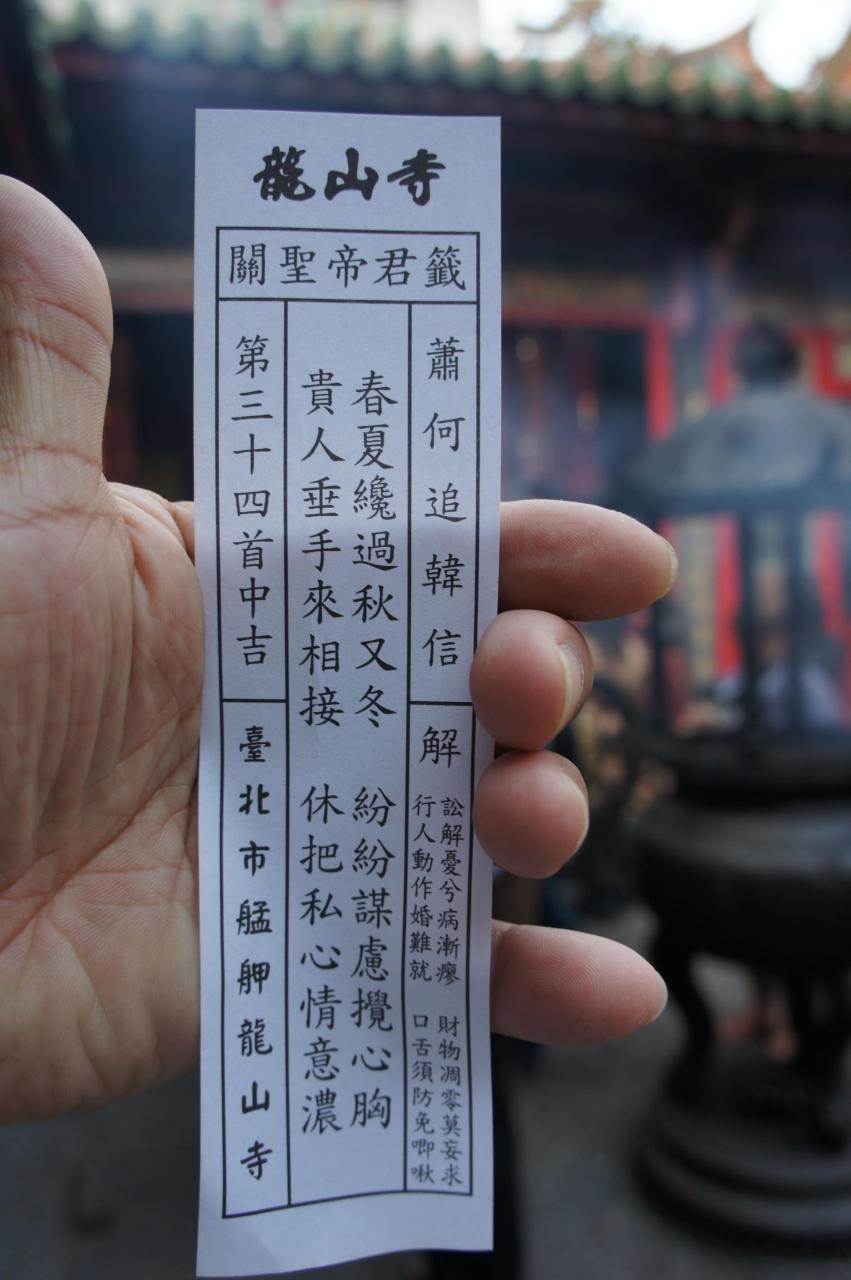 龍山寺
關聖帝君籤
蕭何追韓信
解
訟解憂兮病漸瘳 財物凋零莫妄求
行人動作婚難就 口舌須防免唧啾
春夏纔過秋又冬 紛紛謀慮攪心胸
貴人垂手來相接 休把私心情意濃
第三十四首中吉
臺北市艋舺龍山寺